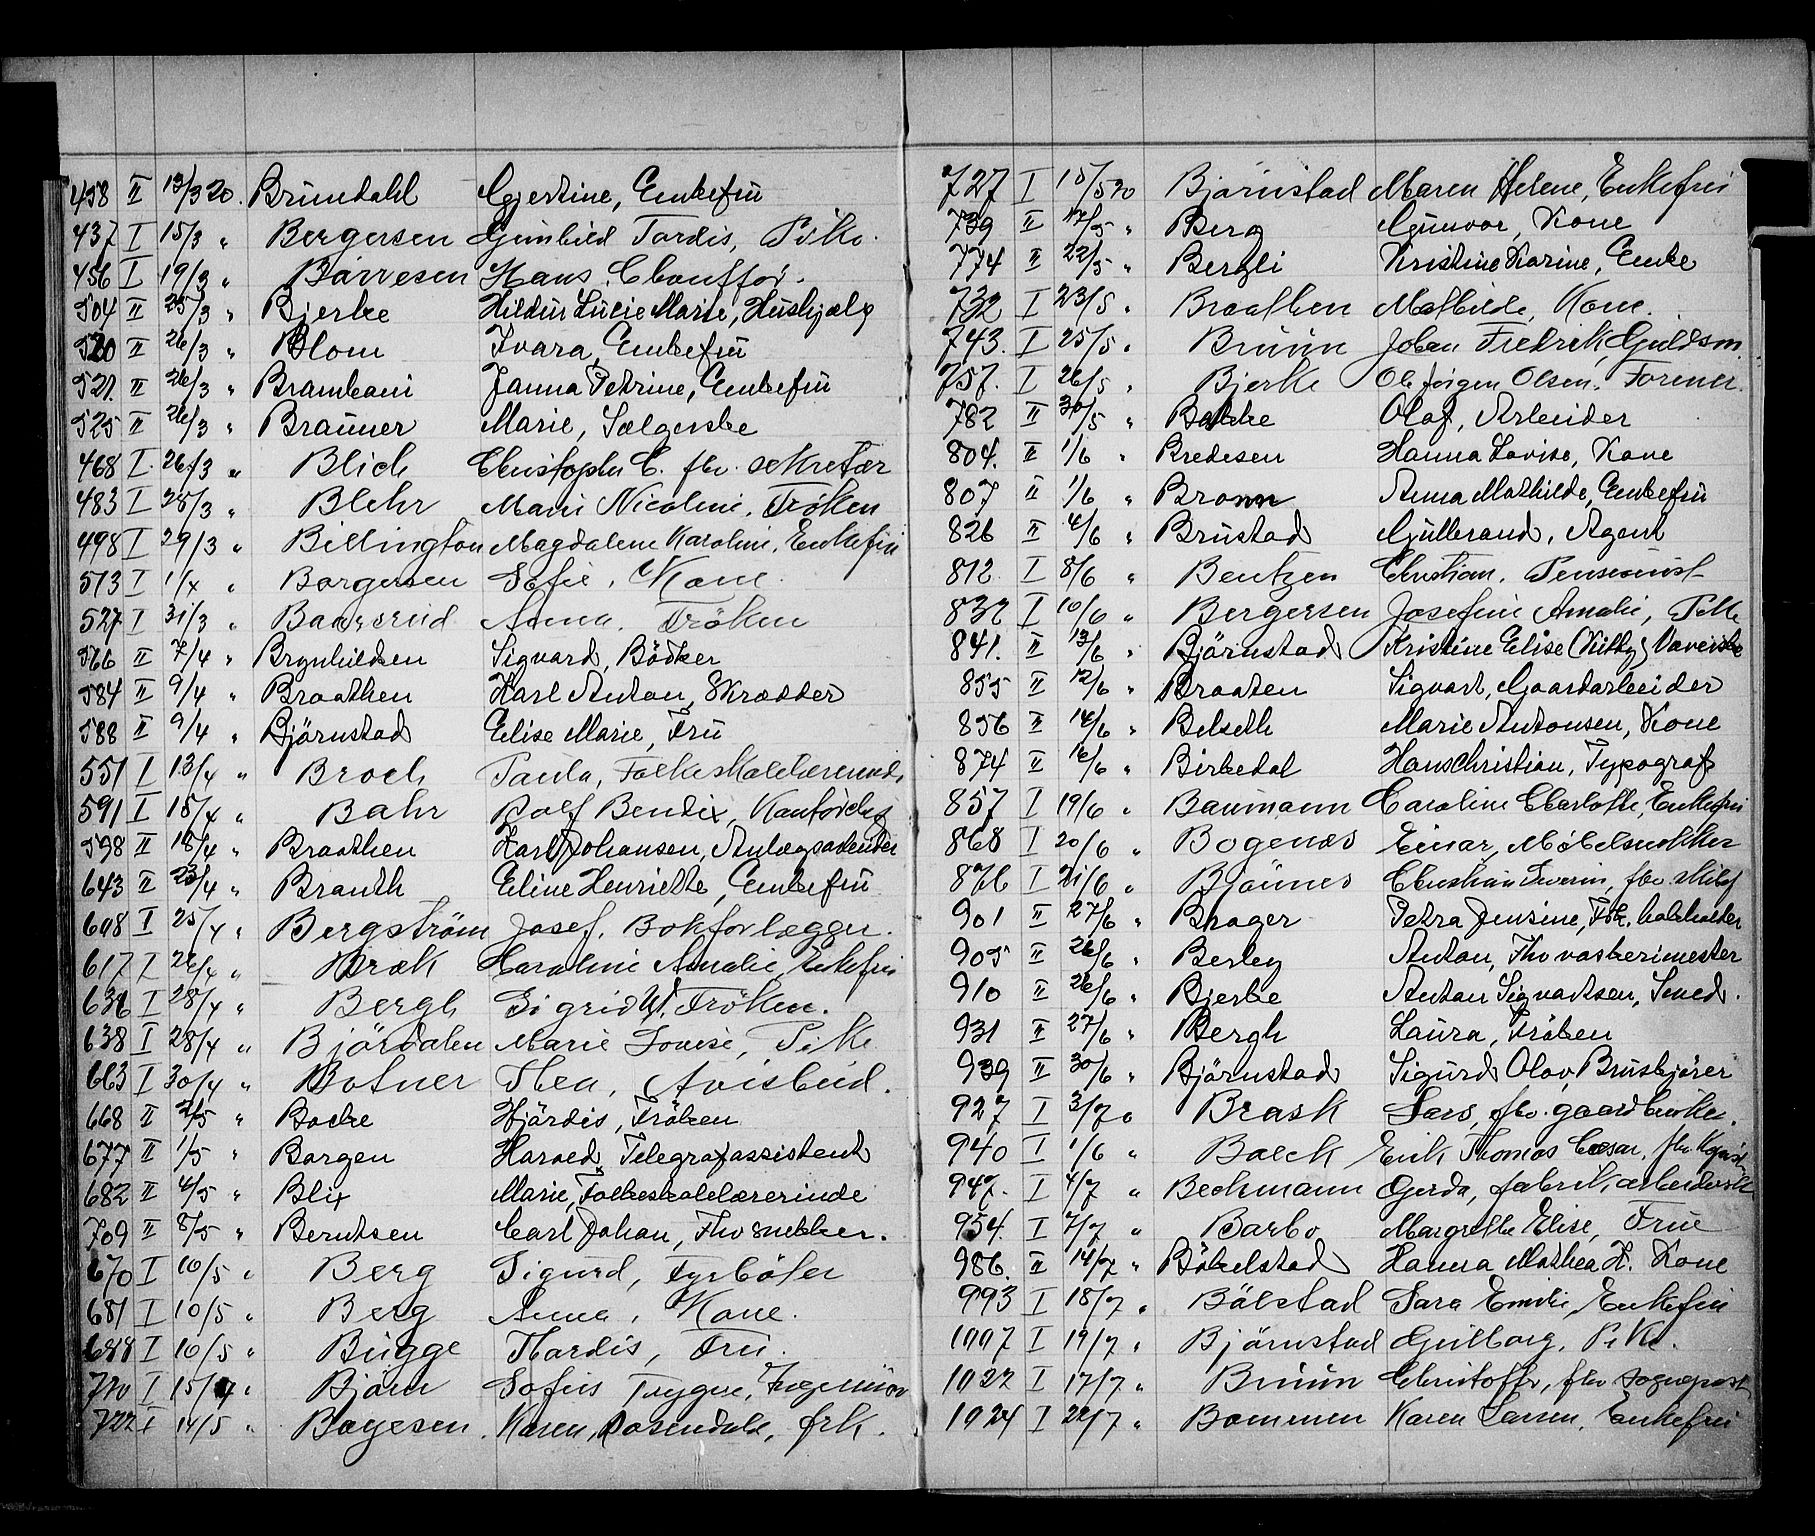 458 II 13/3 20. Brundahl Gjertine, Enkefrü
437 I 15/3 " Bergersen Gunhild Tordis, Pike.
456 I 19/3 " Barvesen Hans, Chauffør.
504 II 25/3 " Bjerke Hildur Lucie Marie, Hushjælp
520 II 26/3 " Blom Ivara, Enkefrü
521. II 26/3 " Brambani Janna Petrine, Enkefrü
525 II 26/3 " Brauner Marie, Sælgerske
468 I 26/3 " Blich Christopher C. fhv. sekretær
483 I 28/3 " Blehr Marie Nicoline, Frøken
498 I 29/3 " Billington Magdalene Karoline, Enkefrü
513 I 1/4 " Borgersen Sofie, Kone.
527 I 31/3 " Baarsrud Anna, Frøken
566 II 7/4 " Brynhildsen Sigvard, Bödker
584 II 9/4 " Braathen Karl Anton, Skrædder
588 II 9/4 " Björnstad Elise Marie, Frü
551 I 13/4 " Broch Paula, Folkeskolelærerinde
591 I 15/4 " Bahr Rolf Bendix, Kontorchef
598 II 18/4 " Braathen Karl Johansen, Anlægsarbeider
643 II 23/4 " Branth Eline Henriette, Enkefrü
608 I 25/4 " Bergström Josef, Bokforlægger.
617 I 26/4 " Bræk Karoline Amalie, Enkefru
636 I 28/4 " Bergh Sigrid W. Frøken.
638 I 28/4 " Bjørdalen Marie Lovise, Pike
663 I 30/4 " Botner Thea, Avisbud.
668 II 2/5 " Bocke Hjördis, Fröken
677 II 1/5 " Borgen Harald, Telegrafassistent
682 II 4/5 " Blix Marie, Folkeskolelærerinde
709 II 8/5 " Berntsen Carl Johan, Fhv snekker.
670 I 10/5 " Berg Sigurd, Fyrbøter
681 I 10/5 " Berg Anna, Kone.
688 I 10/5 " Bugge Thordis, Frü.
720 I 15/4 " Bjørn Sofus Trygve, Ingeniør
722 I 14/5 " Boyesen Karen Rosendale, frk.
727 I 15/5 20 Bjørnstad Maren Helene, Enkefrü
739 II 17/5 " Berg Gunvor, Kone
774 II 22/5 " Bergli Kristine Karine, Enke
732 I 23/5 " Braathen Mathilde, Kone.
743. I 25/5 " Bruun Johan Fredrik, Guldsm.
757. I 26/5 " Bjerke Ole Jørgen Olsen, Forener.
782 II 30/5 " Bakke Olaf, Arbeider
804. II 1/6 " Bredesen Hanna Lovise, Kone
807 II 1/6 " Bronn Anna Mathilde, Enkefrü
826 II 4/6 " Brustad Gulbrand, Agent
812. I 8/6 " Bentzen Christian, Pensionist
832 I 10/6 " Bergersen Josefine Amalie, Pike
841. II 13/6 " Björnstad Kristine Elise (Kitty) Væverske
855 II 12/6 " Braaten Sigvart, Gaardarbeider
856 II 14/6 " Belseth Marie Antonsen, Kone
874 II 16/6 " Birkedal Hans Christian, Typograf
857 I 19/6 " Baumann Caroline Charlotte, Enkefru
868 I 20/6 " Bogenæs Einar, Møbelsnekker
876 I 21/6 " Bjønnes Christian Severin, fhv skibsf
901 II 27/6 " Brager Petra Jensine, Frk.
905 II 26/6 " Berley Anton, Fhv vaskerimester
910 II 26/6 " Bjerke Anton Sigvartsen, Smed.
931 II 27/6 " Bergh Laura, Fröken
939 II 30/6 " Björnstad Sigurd Olav, Bruskjører
927 I 3/7 " Brask Lars, fhv. gaardbruker.
940 I 1/6 " Boeck Erik Thomas Cæsar, fhv
947. I 4/7 " Beckmann Gerda, fabrikarbeiderske
954. I 7/7 " Barbo Margrethe Elise, Frue
986. II 14/7 " Bökelstad Hanna Mathea H. Kone
993 I 18/7 " Bölstad Sara Emilie, Enkefru
1007 I 19/7 " Bjørnstad Gulborg, Pike.
1022 I 17/7 " Bruun Christoffer, fhv sogneprest
1024 I 22/7 " Bommen Karen Larsen, Enkefru